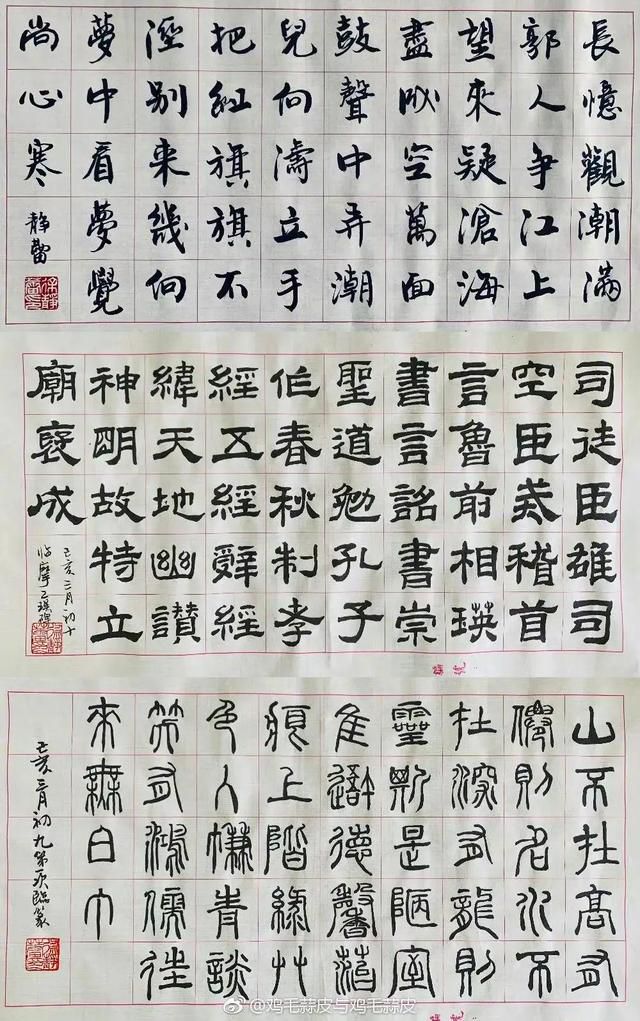 長憶觀潮滿
郭人争江上
望來疑滄海
盡成空萬面
鼓聲中弄潮
兒向濤立手
把紅旗旗不
溼别来幾向
夢中看夢覺
尚心寒
静蕾
司徒臣雄司
空臣戒稽首
言魯前相瑛
書言詔書崇
聖道勉孔子
作春秋制孝
經五經辭經
緯天地幽讃
神明故特立
廟褒成
己亥三月初十
临摩乙瑛碑
山不在高有
僊則名水不
在深有龍則
靈斯是陋室
隹吾德馨苔
痕上階緑艸
色入簾青談
笑有鴻儒往
來無白丁
己亥三月初九第一次臨篆
@鸡毛蒜皮与鸡毛蒜皮